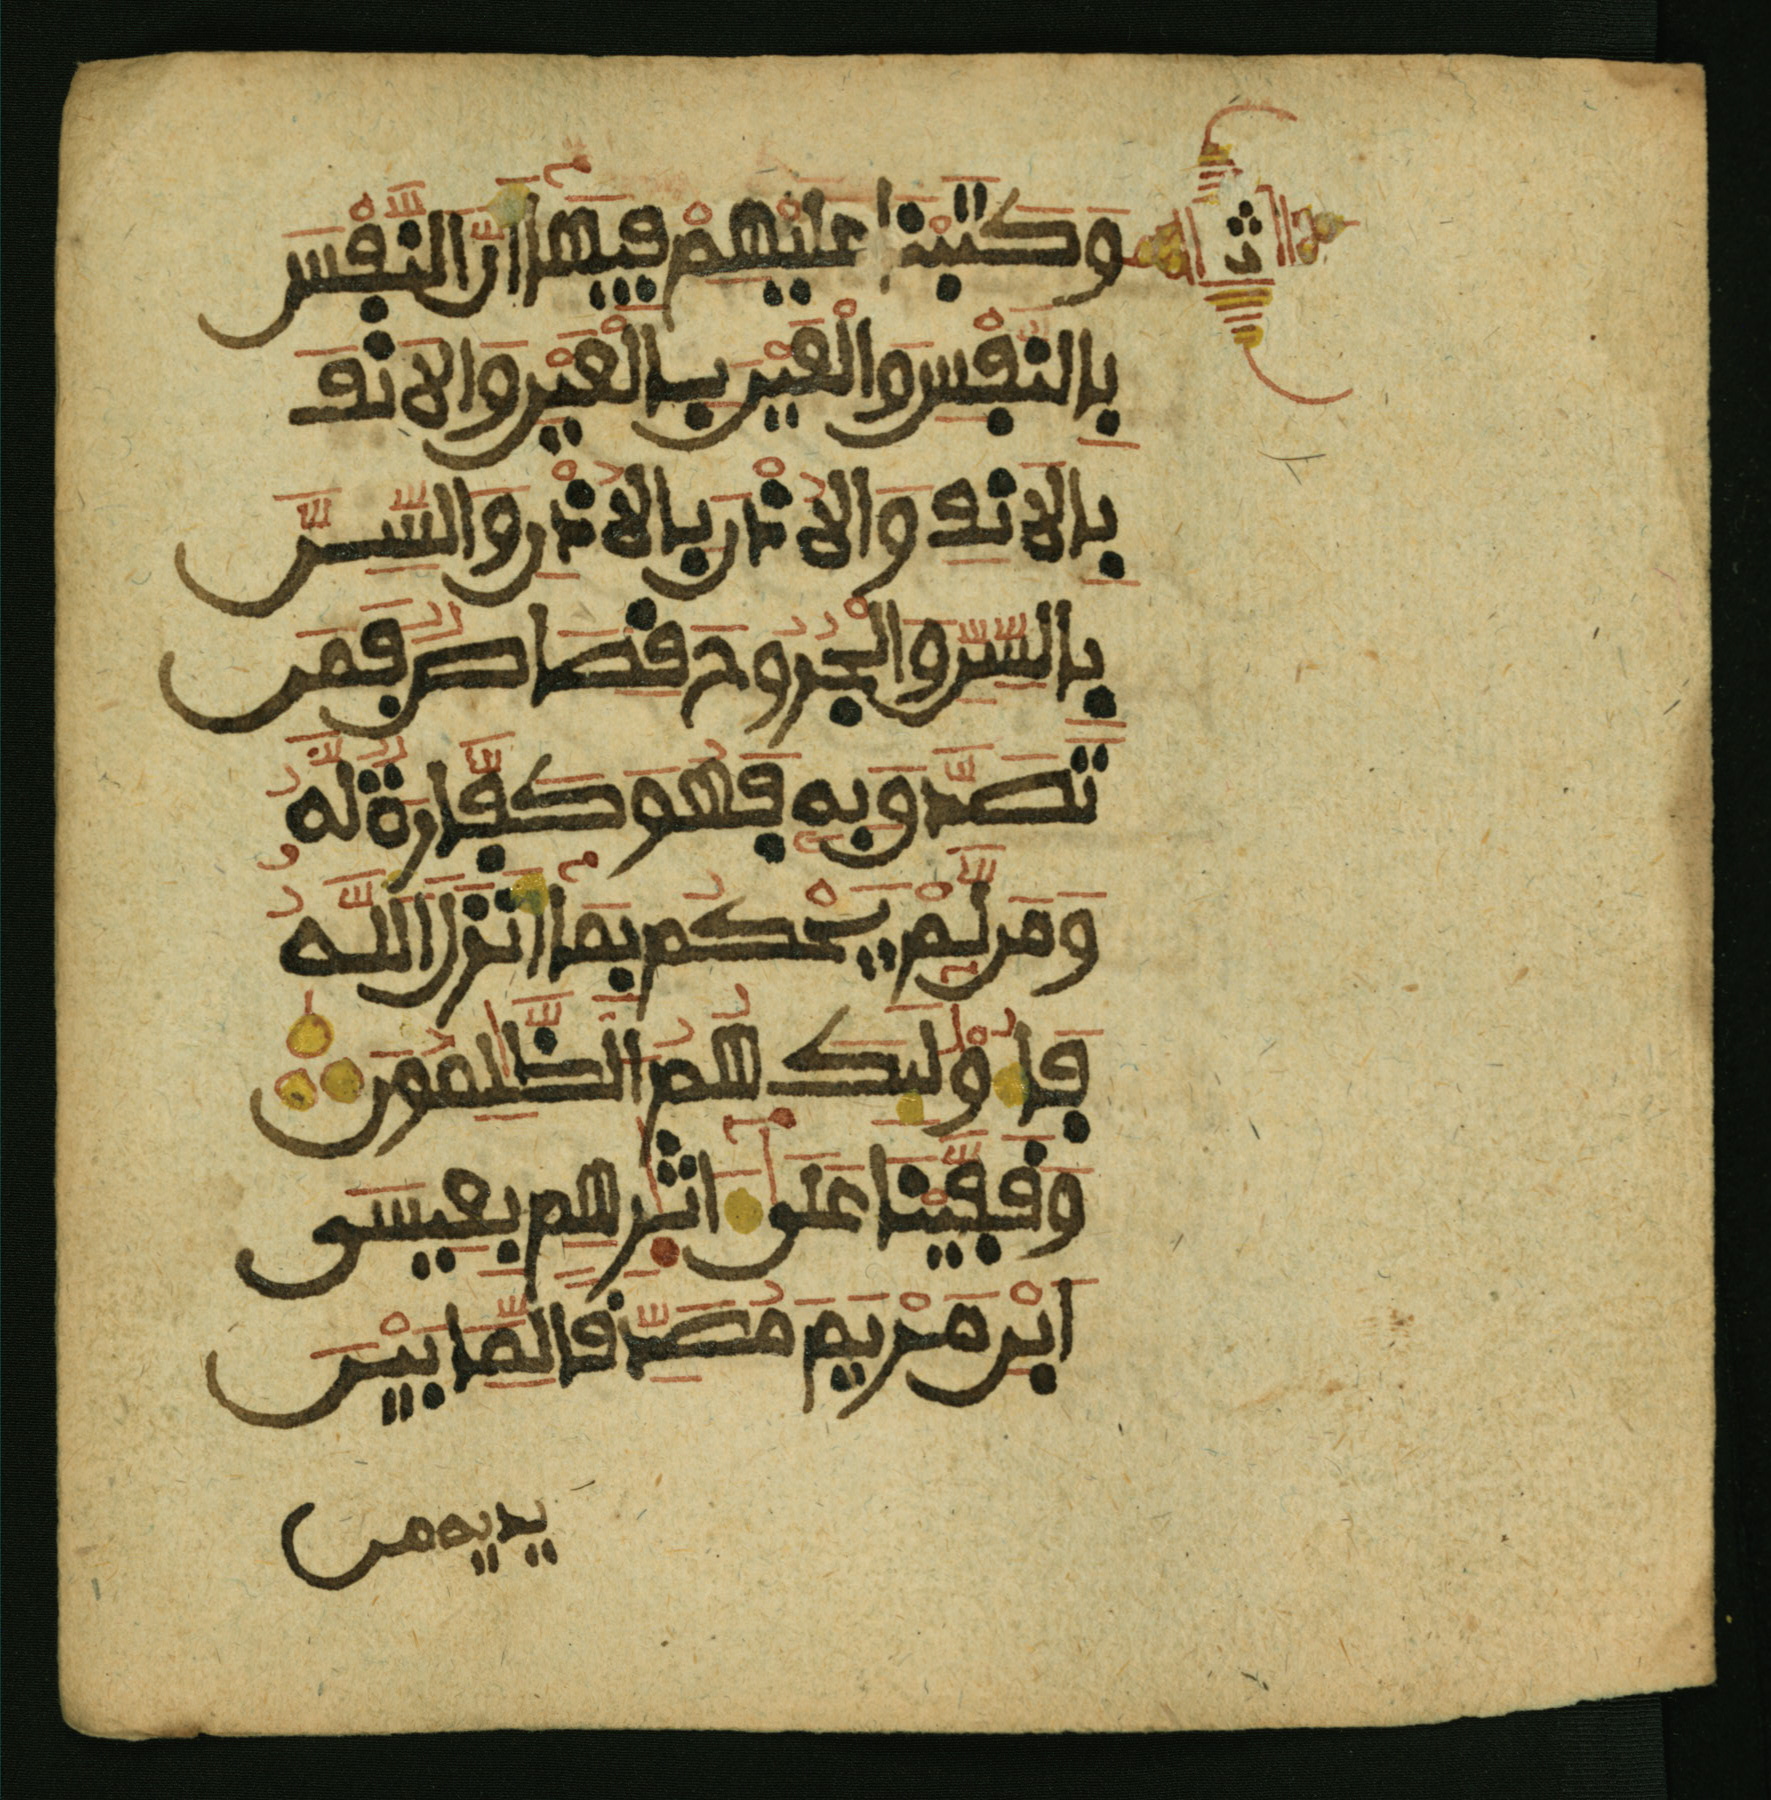 ث
وَكَتَبْنَا عَلَيْهِمْ فِيهَا أَنَّ النَّفْسَ
بِالنَّفْسِ وَالْعَيْنَ بِالْعَيْنِ وَالَانفَ
بِالَانفِ وَالُاذْنَ بِالُاذْنِ وَالسِّنَّ
بِالسِّنِّ وَالْجُرُوحَ قِصَاصٌ فَمَن
تَصَدَّقَ بِهِ فَهُوَ كَفَّارَةٌ لَّهُ
وَمَن لَّمْ يَحْكُم بِمَا أَنزَلَ اللَّهُ
فَأُوْلَٰئِكَ هُمُ الظَّٰلِمُونَ
وَقَفَّيْنَا عَلَىٰ ءَاثَٰرِهِم بِعِيسَى
ابْنِ مَرْيَمَ مُصَدِّقًا لِّمَا بَيْنَ
يديه من